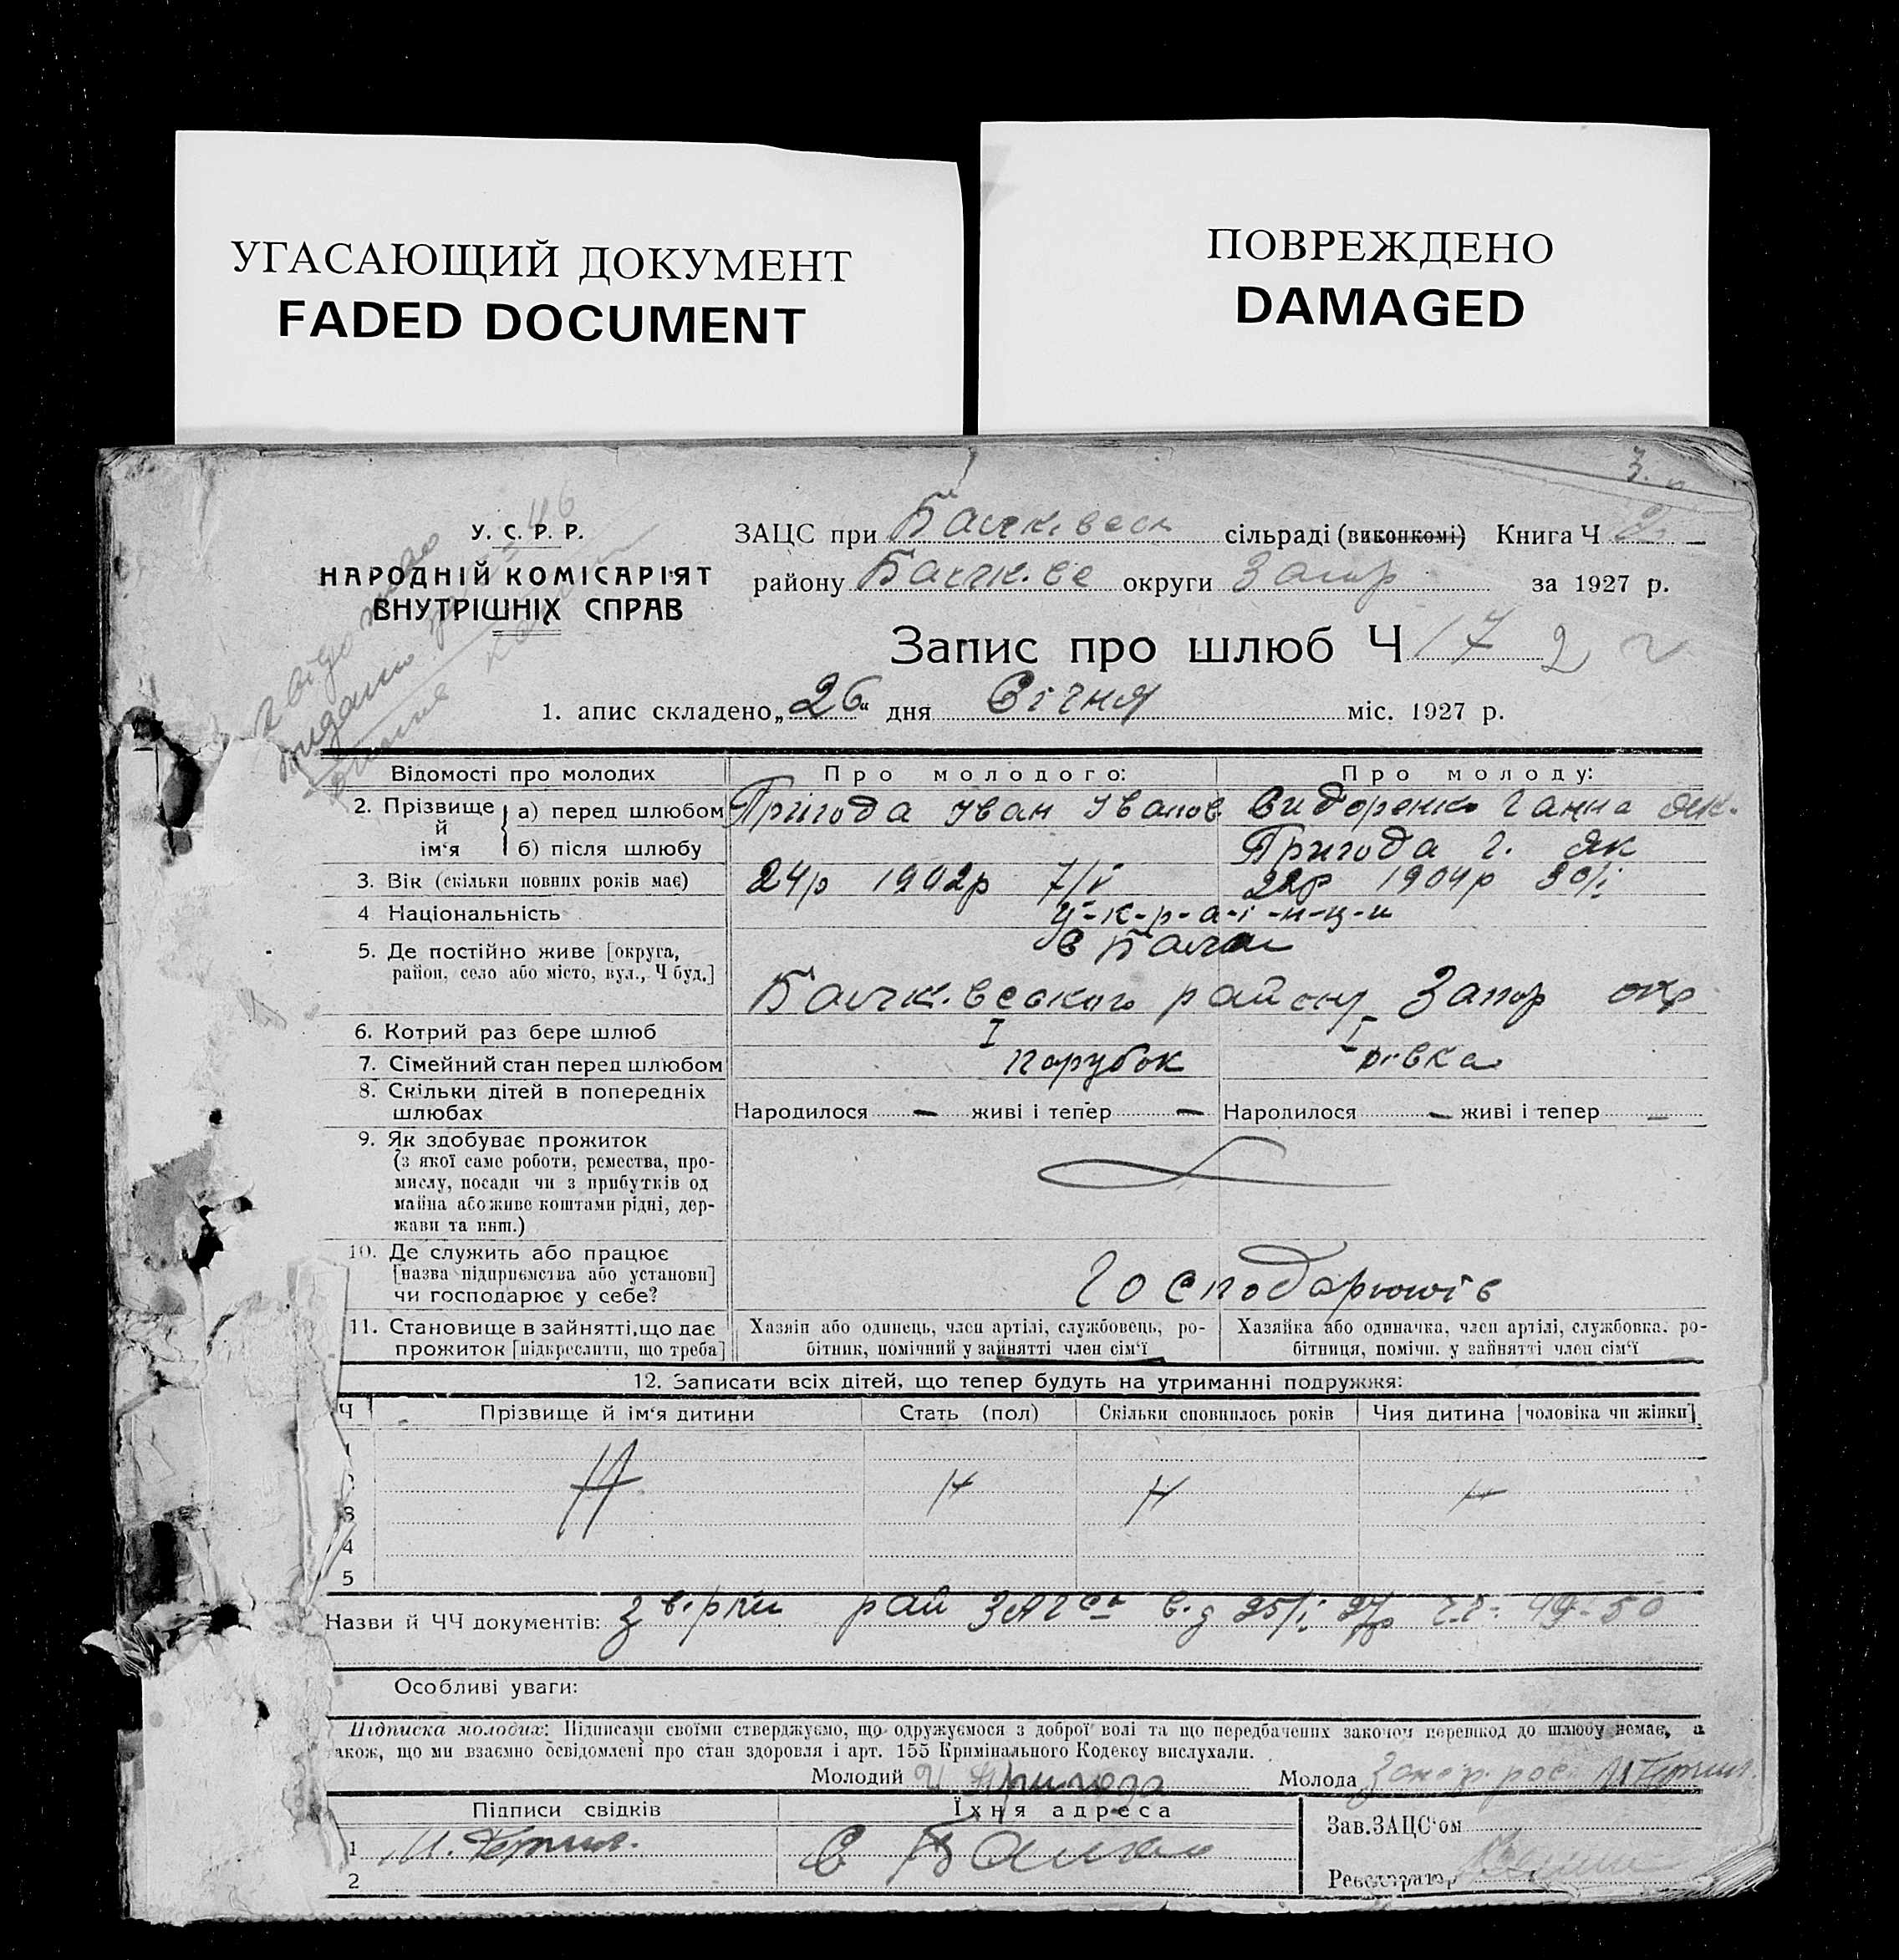 УГАСАЮЩИЙ ДОКУМЕНТ
FADED DOCUMENT
ПОВРЕЖДЕНО
DAMAGED
3.
У. С. Р. Р.
НАРОДНІЙ КОМІСАРІЯТ
ВНУТРІШНІХ СПРАВ
ЗАЦС при сільраді (виконкомі) Книга Ч 2
району округи Запор за 1927 р.
Запис про шлюб Ч 17 2
1. апис складено „26“ дня Січня міс. 1927 р.
Відомості про молодих Про молодого: Про молоду:
2. Прізвище й ім‘я а) перед шлюбом Пригода Іван Іванов Сидоренко Ганна Як.
б) після шлюбу Пригода Г. Як
3. Вік (скільки повних років має) 24р 1902р 7/V 22р 1904р 30/і
4 Національність У-к-р-а-ї-н-ц-и
5. Де постійно живе [округа, район, село або місто, вул., Ч буд.] с
району Запор окр
6. Котрий раз бере шлюб I I
7. Сімейний стан перед шлюбом парубок дівка
8. Скільки дітей в попередніх шлюбах Народилося — живі і тепер — Народилося — живі і тепер —
9. Як здобуває прожиток
(з якої саме роботи, ремества, про-
мислу, посади чи з прибутків од
майна або живе коштами рідні, дер-
жави та инш.)
10. Де служить або працює
[назва підприємства або установи]
чи господарює у себе? Господарюють
11. Становище в зайнятті, що дає Хазяїн або одинець, член артілі, службовець, ро- Хазяйка або одиначка, член артілі, службовка, ро-
прожиток [підкреслити, що треба] бітник, помічний у зайнятті член сім‘ї бітниця, помічн. у зайнятті член сім‘ї
12. Записати всіх дітей, що тепер будуть на утриманні подружжя:
Ч Прізвище й ім‘я дитини Стать (пол) Скільки сповнилось років Чия дитина [чоловіка чи жінки]
3
4
5
Назви й ЧЧ документів: рай від 25/і 27р 49-50
Особливі уваги:
Підписка молодих: Підписами своїми стверджуємо, що одружуємося з доброї волі та що передбачених законом перешкод до шлюбу немає, а
також, що ми взаємно освідомлені про стан здоровля і арт. 155 Кримінального Кодексу вислухали.
Молодий И Пригода Молода
Підписи свідків Їхня адреса Зав. ЗАЦС‘ом
1 И. С
2 Реєстратор